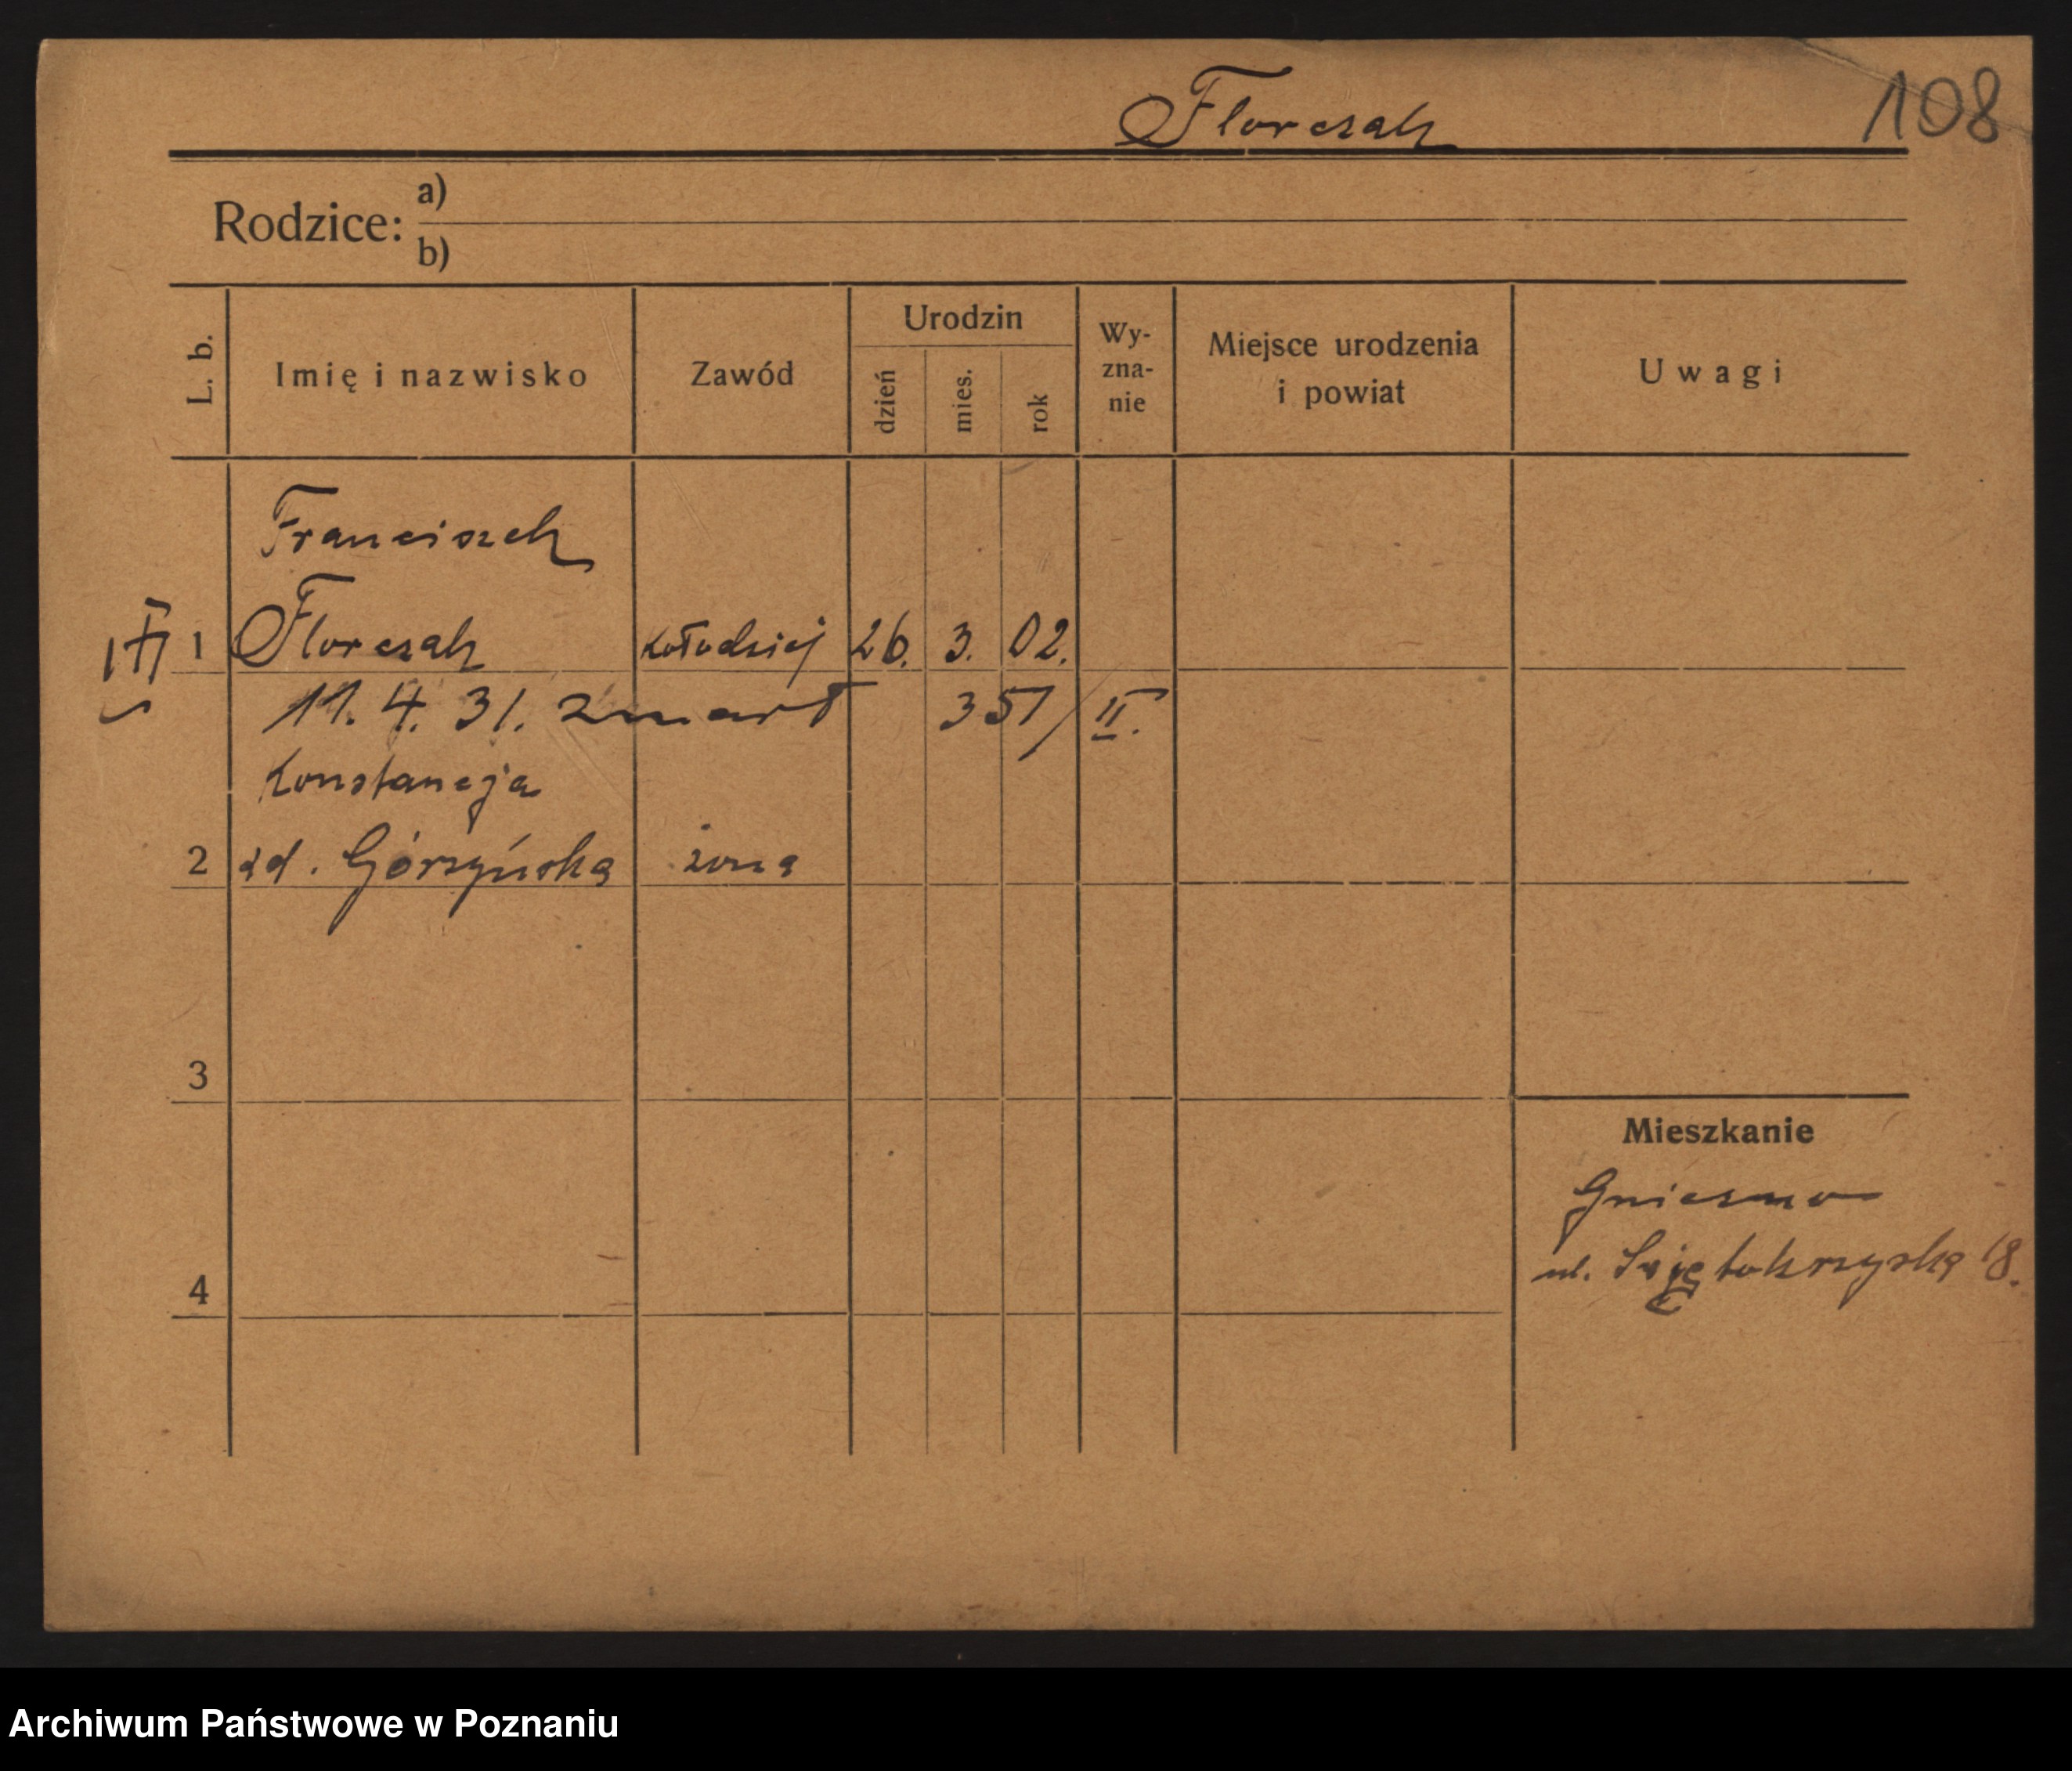 Florczak
108
Rodzice: a)
b)
L. b.
Imię i nazwisko
Zawód
Urodzin
dzień
mies.
rok
Wy-
zna-
nie
Miejsce urodzenia
i powiat
Uwagi
Franciszek
1 Florczak kołodziej 26. 3. 02.
11. 4. 31. zmarł 351/II.
Konstancja
2 zd. Górzyńska żona
3
4
Mieszkanie
Gniezno
ul. Świętokrzyska 18.
Archiwum Państwowe w Poznaniu